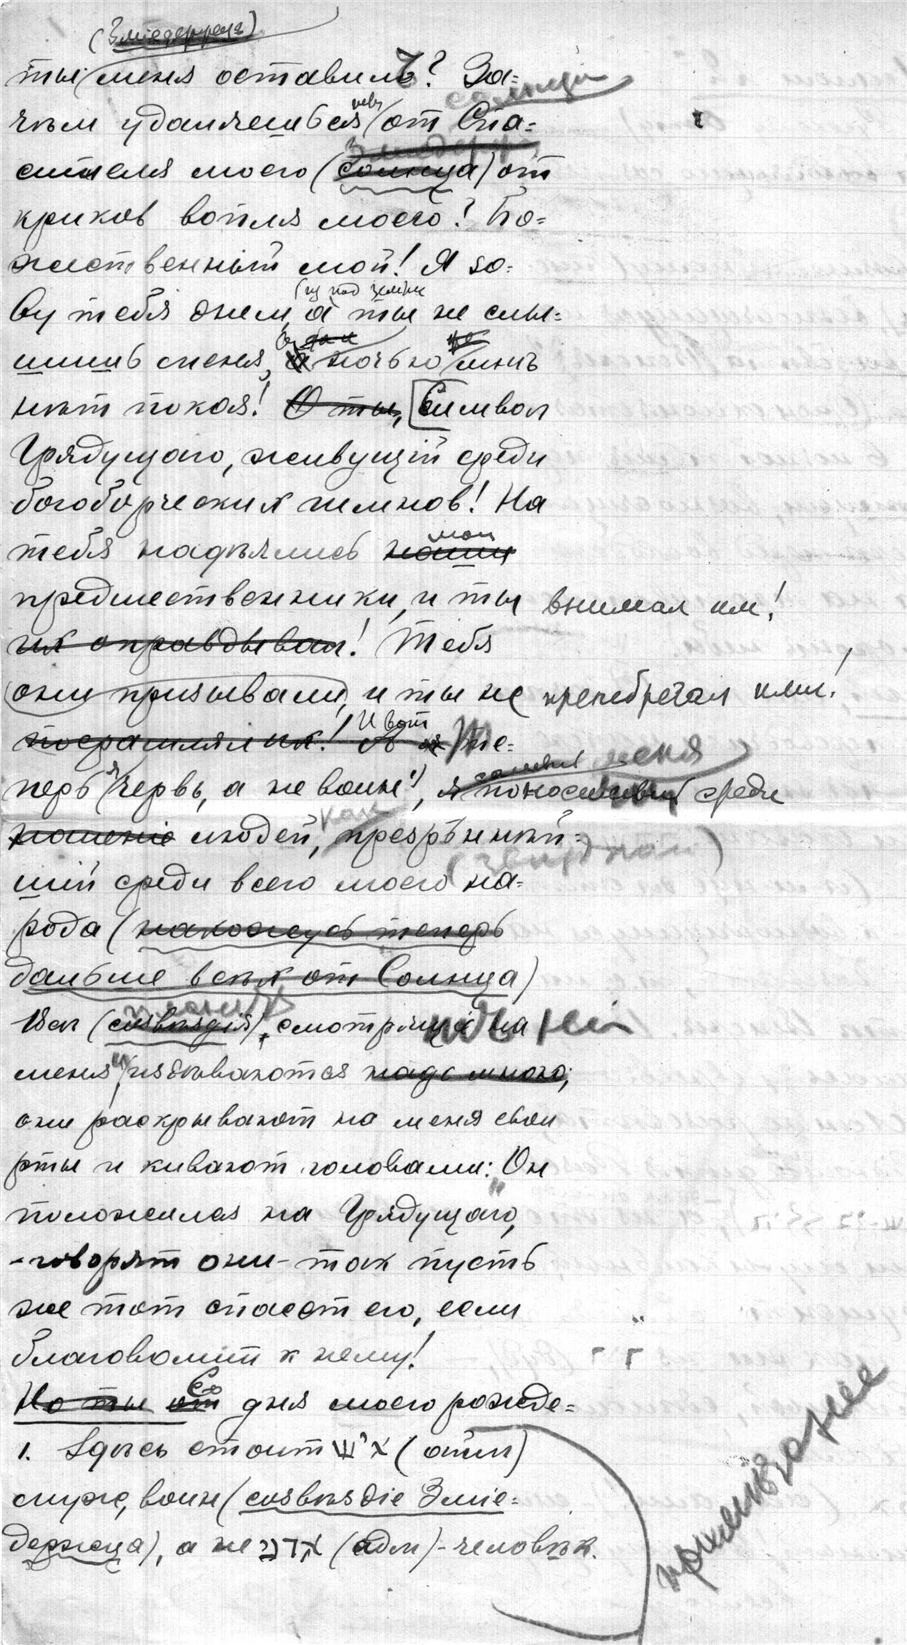 (Змiедержецъ)
ты меня оставилъ? За=
солнца
чѣмъ удаляешься ты от Спа=
Змiедержца
сителя моего (солнца) от
криков вопля моего? Бо=
жественный мой! Я зо=
ву тебя днем, а ты не слы=
шишь меня, и ночью мнѣ
нѣт покоя! О ты, Символ
Грядущаго, живущiй среди
богоборческих гимнов! На
мои
тебя надѣялись наши
предшественники, и ты внимал им!
их оправдывал! Тебя
они призывали, и ты не пренебрегал ими!
И вот
посрамлял их! те=
меня
перь я червь, а не воин¹), я поносимый среди
людей, как презрѣннѣй=
шiй среди всего моего на=
рода (нахожусь теперь
дальше всѣх от Солнца)
Всѣ (созвѣздiя), смотрящiя на
меня, издѣваются надо мною;
они раскрывают на меня свои
рты и кивают головами: "Он
положился на Грядущаго,
- говорят они - так пусть
же тот спасет его, если
благоволит к нему!"
Со
Но ты от дня моего рожде=
1. Здѣсь стоит איש (аиш)
муж, воин (созвѣздiе Змiе=
держца), а не אדם (адм) - человѣк.
примѣчанiе